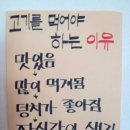 고기를 먹어야
하는 이유
맛있음
많이 먹게됨
덩치가 좋아짐
자신감이 생김